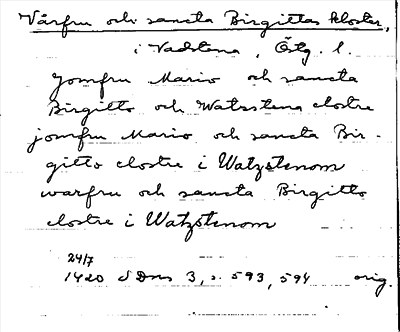 Vårfru och sancta Birgittas kloster,
i Vadstena, Östg. l.
Jomfru Mario och sancta
Birgitto och Watzstena clostre
jomfru Mario och sancta Bir-
gitto clostre i Watzstenom
warfru och sancta Birgitto
clostre i Watzstenom
24/7
1420 SDns 3, s. 593, 594 orig.